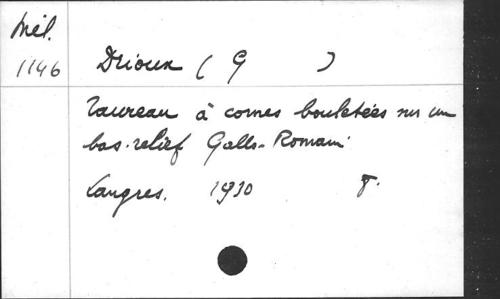 Mél.
1146
Drioux ( G )
Taureau à cornes bouletées sur un
bas-relief Gallo-Romain
Langres. 1930 8.